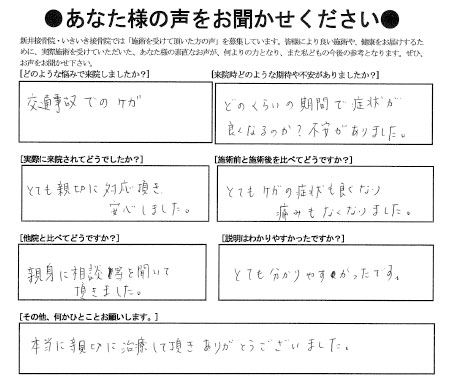 ●あなた様の声をお聞かせください●
新井接骨院・いきいき接骨院では「施術を受けて頂いた方の声」を募集しています。皆様により良い施術や、健康をお届けするた
めに、実際施術を受けていただいた、あなた様の素直なお声が、何よりの力となり、また私どもの今後の参考となります。ぜひ、
お声をお聞かせ下さい。
[どのような悩みで来院しましたか?]
交通事故でのケガ
[来院時どのような期待や不安がありましたか?]
どのくらいの期間で症状が
良くなるのか?不安がありました。
[実際に来院されてどうでしたか?]
とても親切に対応頂き
安心しました。
[施術前と施術後を比べてどうですか?]
とてもケガの症状も良くなり
痛みもなくなりました。
[他院と比べてどうですか?]
親身に相談等を聞いて
頂きました。
[説明はわかりやすかったですか?]
とても分かりやすかったです。
[その他、何かひとことお願いします。]
本当に親切に治療して頂きありがとうございました。